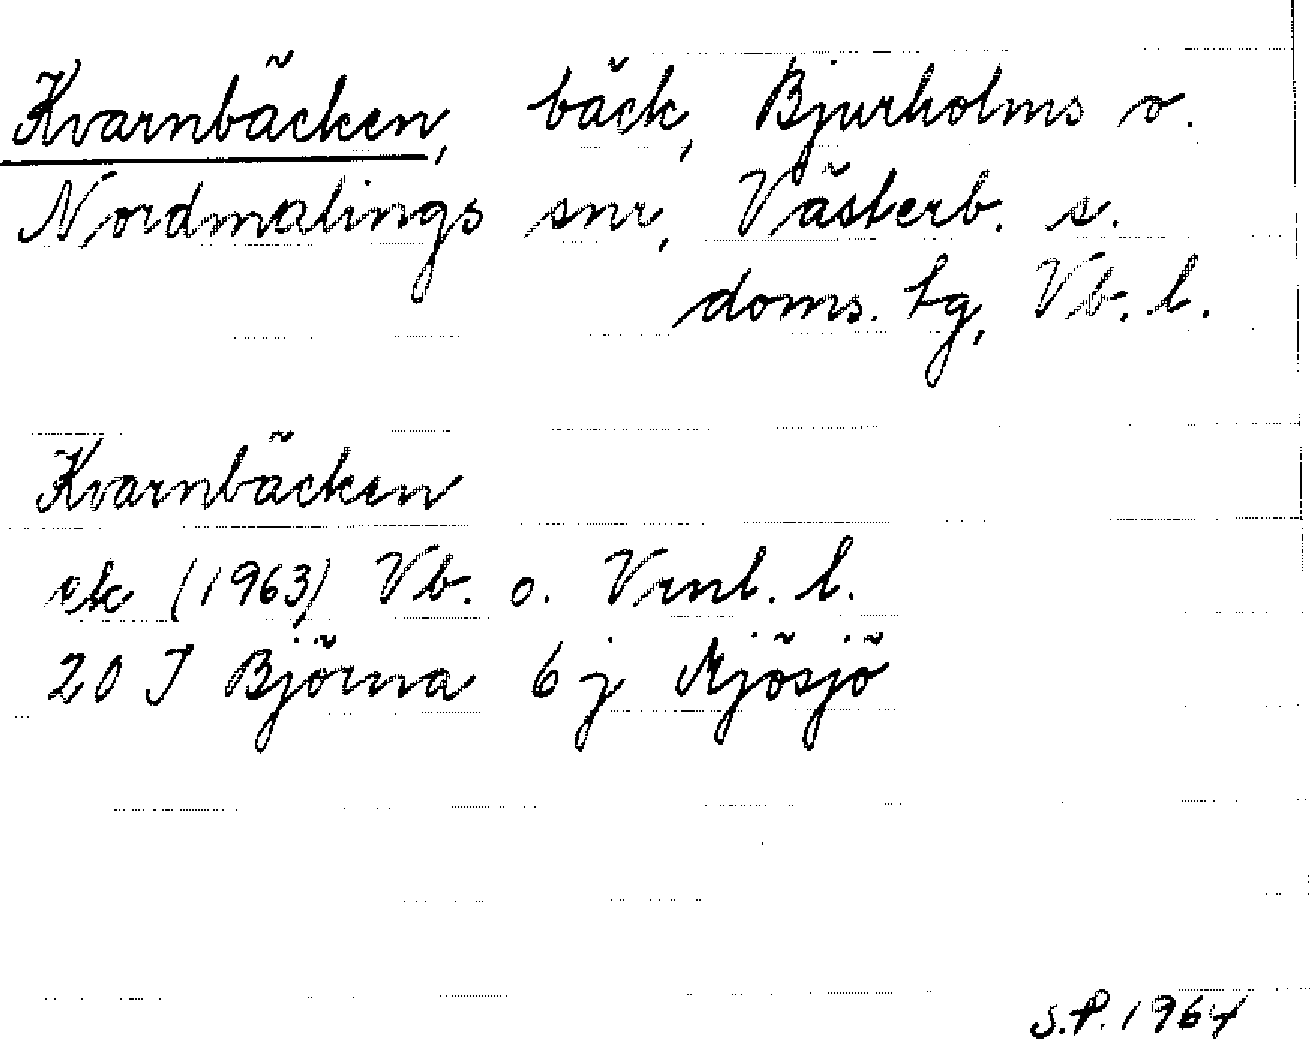 Kvarnbäcken, bäck, Bjurholms o.
Nordmalings snr, Västerb. s.
doms. tg, Vb. l.
Kvarnbäcken
ek (1963) Vb. o. Vrnl. l.
20 J Björna 6 j Mjösjö
S.P. 1964